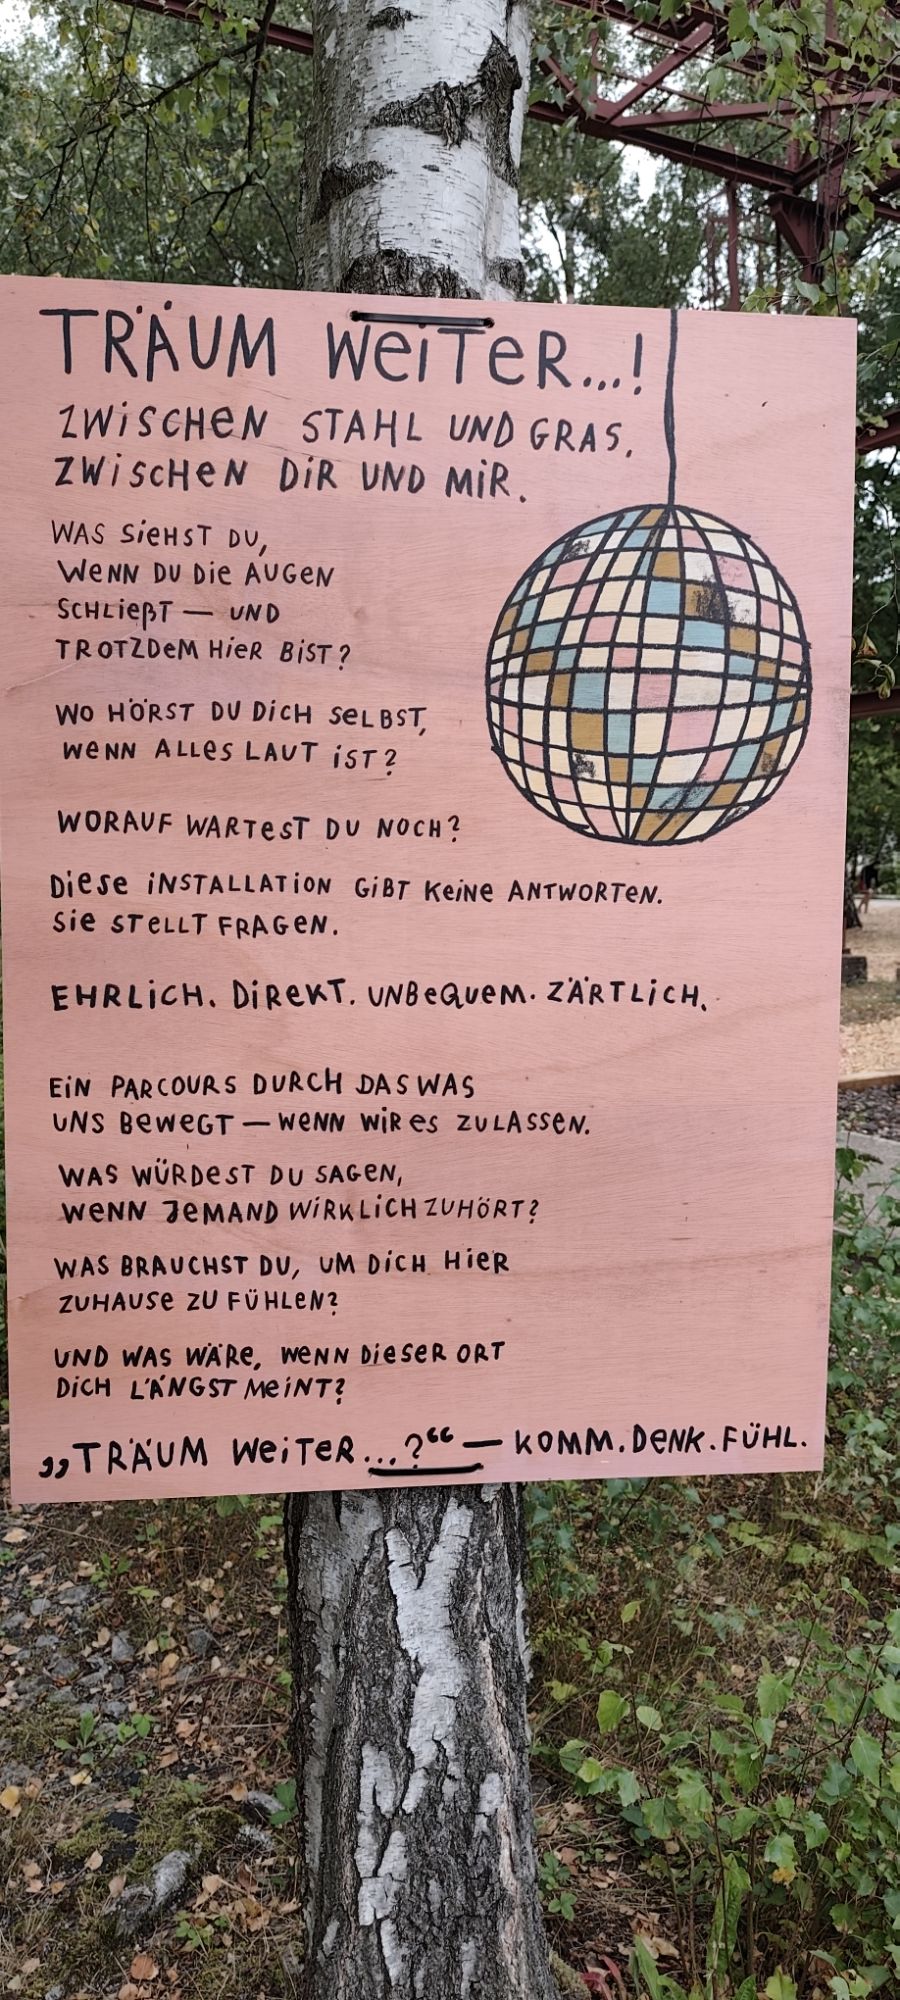 TRÄUM WEITER...!
ZWISCHEN STAHL UND GRAS,
ZWISCHEN DIR UND MIR.
WAS SIEHST DU,
WENN DU DIE AUGEN
SCHLIEßT — UND
TROTZDEM HIER BIST?
WO HÖRST DU DICH SELBST,
WENN ALLES LAUT IST?
WORAUF WARTEST DU NOCH?
DIESE INSTALLATION GIBT KEINE ANTWORTEN.
SIE STELLT FRAGEN.
EHRLICH. DIREKT. UNBEQUEM. ZÄRTLICH.
EIN PARCOURS DURCH DAS WAS
UNS BEWEGT — WENN WIR ES ZULASSEN.
WAS WÜRDEST DU SAGEN,
WENN JEMAND WIRKLICH ZUHÖRT?
WAS BRAUCHST DU, UM DICH HIER
ZUHAUSE ZU FÜHLEN?
UND WAS WÄRE, WENN DIESER ORT
DICH LÄNGST MEINT?
„TRÄUM WEITER...?“ — KOMM. DENK. FÜHL.